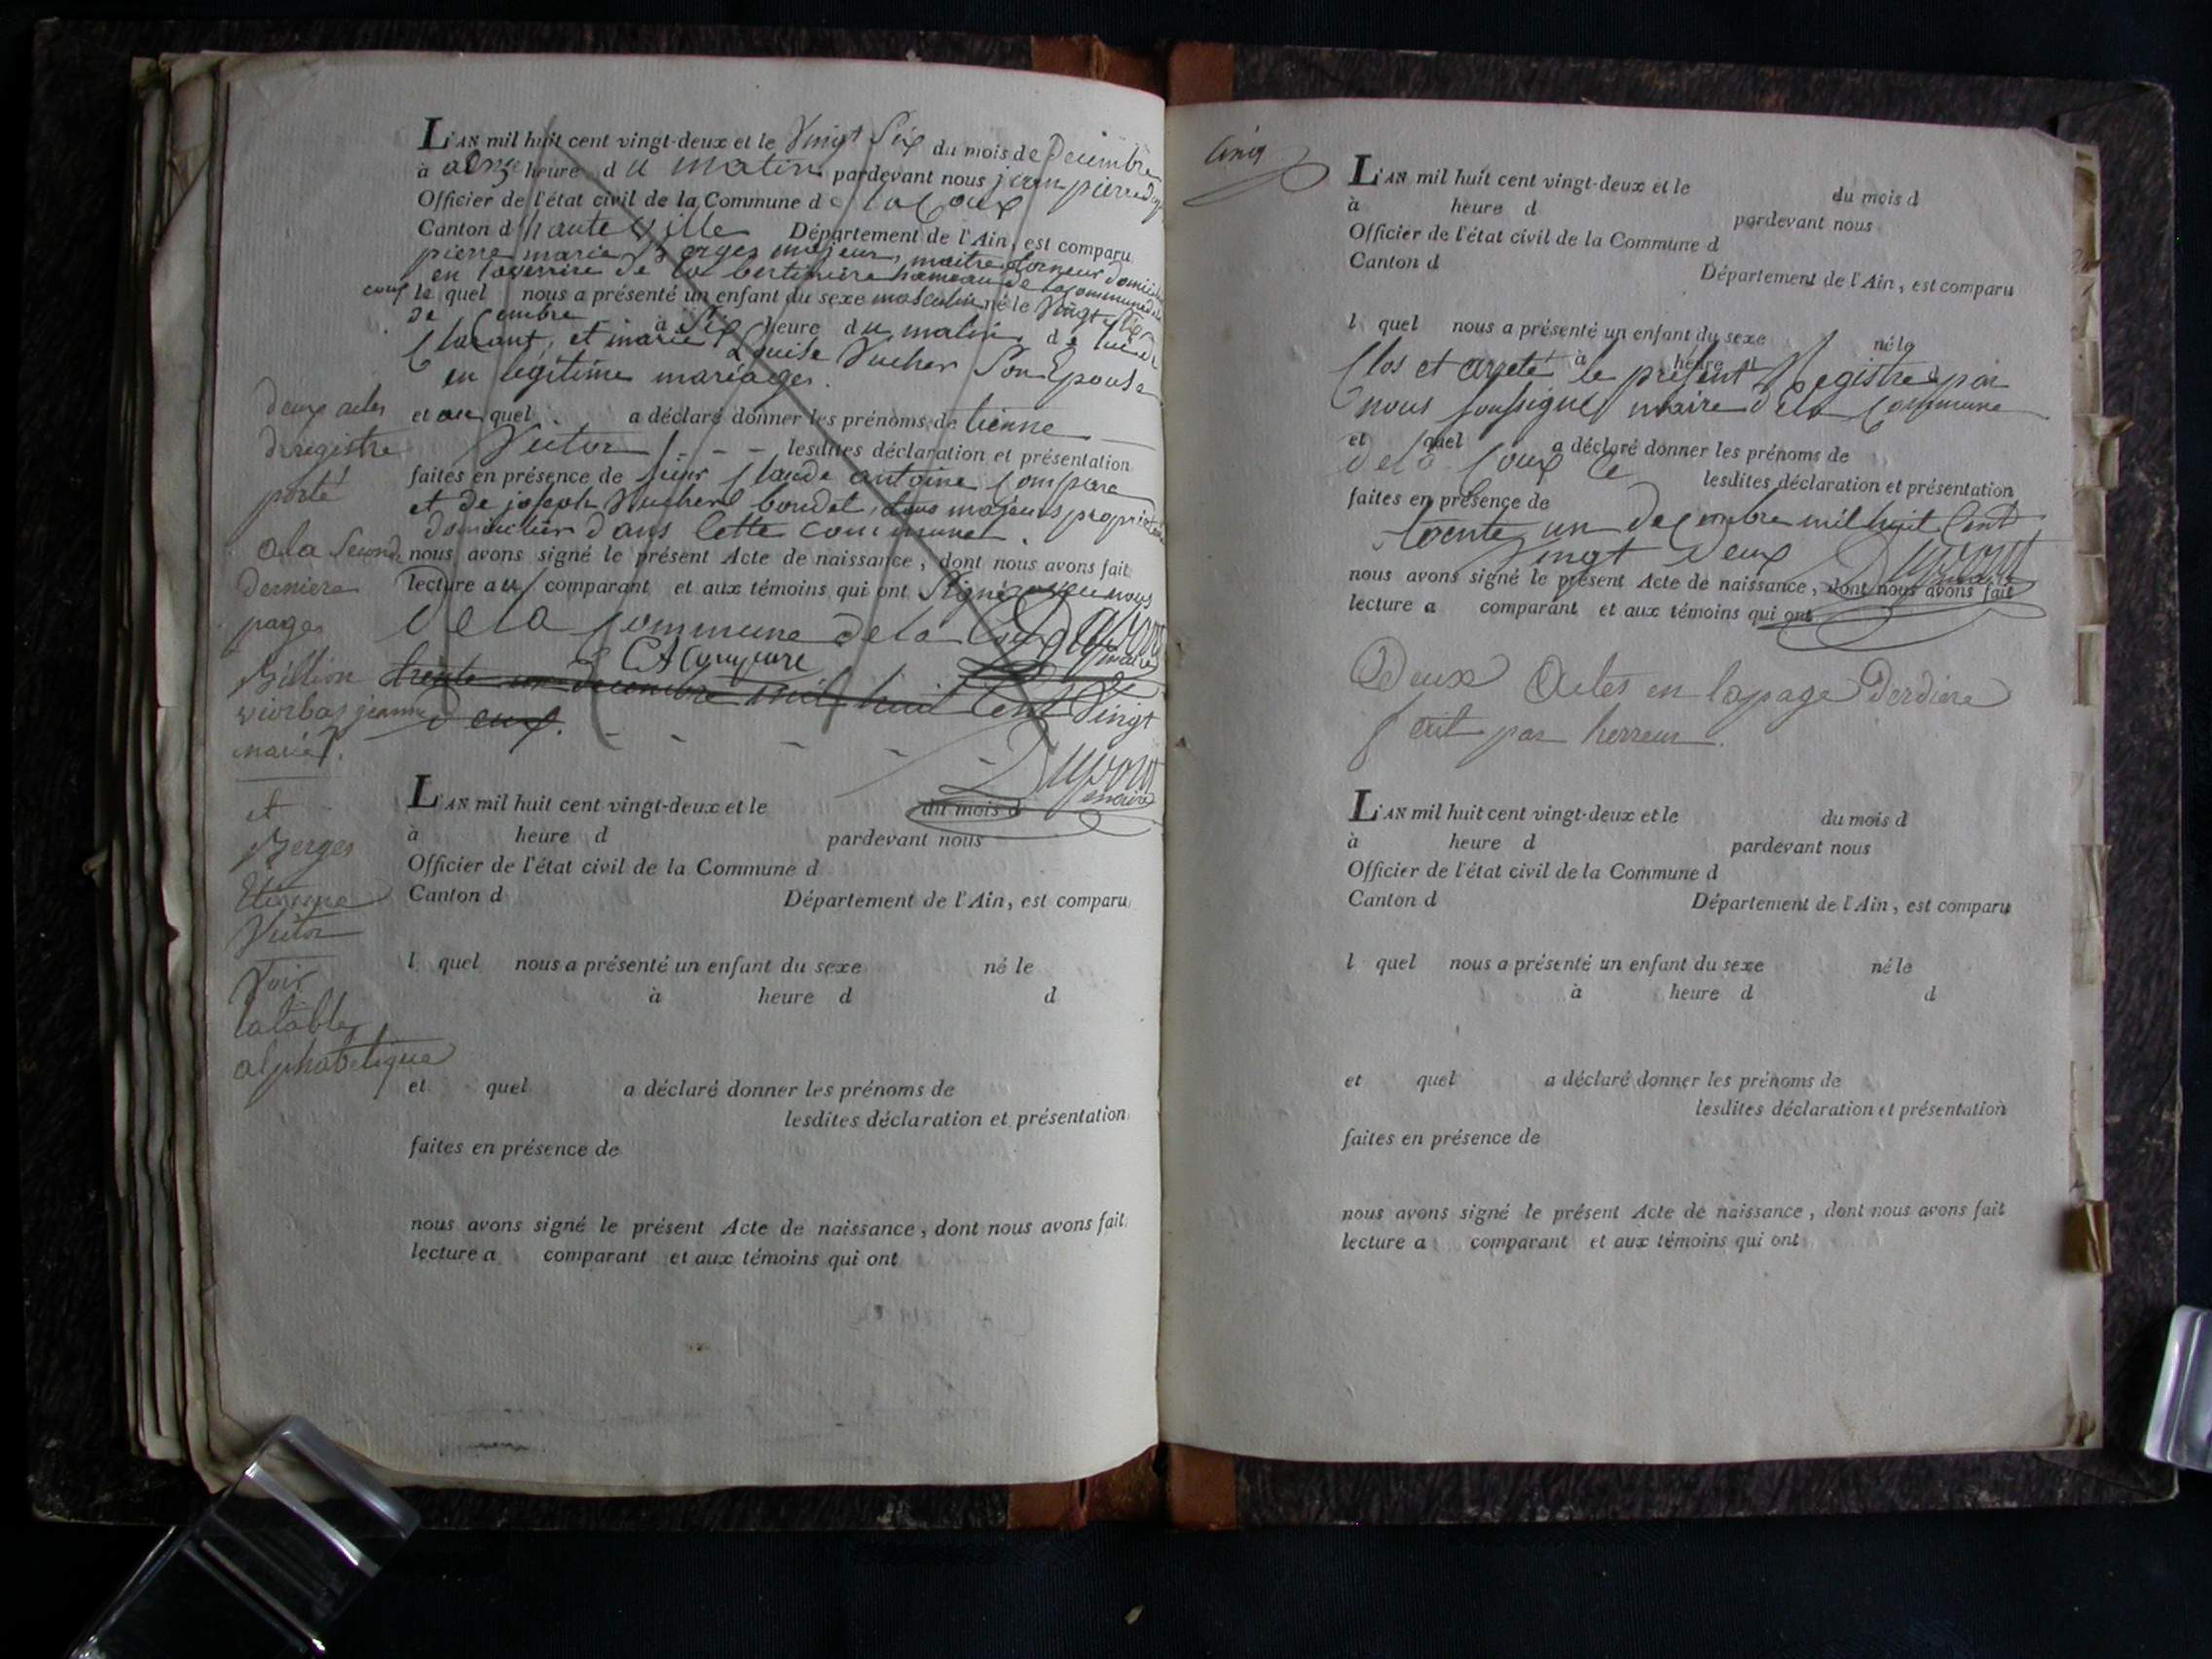 L'AN mil huit cent vingt-deux et le Vingt Six du mois de Decembre
à onze heure du matin pardevant nous jean pierre
Officier de l'état civil de la Commune de la Coux
Canton d'hauteville Département de l'Ain, est comparu
pierre marie Berges majeur, maitre
en de la hameau de la commune de la
coux le quel nous a présenté un enfant du sexe masculin né le Vingt Six
decembre à Six heure du matin de lui de
Clarant, et marie Louise Vucher Son Epouse
en legitime mariages.
et au quel a déclaré donner les prénoms de Etienne
Victor lesdites déclaration et présentation
faites en présence de Sieur Claude antoine Compare
et de joseph Vucher boudet, tous majeurs
domicilier dans Cette commune.
nous avons signé le présent Acte de naissance, dont nous avons fait
lecture au comparant et aux témoins qui ont Signé
de la Commune de la Coux
maire
trente un decembre mil huit Cent Vingt
deux.
maire
deux actes
de registre
porté
a la Seconde
derniere
pages
Billion
jeanne
mariet.
et
Berges
Etienne
Victor
Voir
la table
alphabetique
L'AN mil huit cent vingt-deux et le du mois d
à heure d pardevant nous
Officier de l'état civil de la Commune d
Canton d Département de l'Ain, est comparu
l quel nous a présenté un enfant du sexe né le
à heure d d
et quel a déclaré donner les prénoms de
lesdites déclaration et présentation
faites en présence de
nous avons signé le présent Acte de naissance, dont nous avons fait
lecture a comparant et aux témoins qui ont
Cinq
L'AN mil huit cent vingt-deux et le du mois d
à heure d pardevant nous
Officier de l'état civil de la Commune d
Canton d Département de l'Ain, est comparu
l quel nous a présenté un enfant du sexe né le
à heure d
Clos et arreté le présent Registre par
nous soussigné maire de la Commune
et quel a déclaré donner les prénoms de
de la Coux Ce
lesdites déclaration et présentation
faites en présence de
trente un decembre mil huit Cent
Vingt Deux
maire
nous avons signé le présent Acte de naissance, dont nous avons fait
lecture a comparant et aux témoins qui ont
Deux Actes en la page Derdiere
fait par herreur.
L'AN mil huit cent vingt-deux et le du mois d
à heure d pardevant nous
Officier de l'état civil de la Commune d
Canton d Département de l'Ain, est comparu
l quel nous a présenté un enfant du sexe né le
à heure d d
et quel a déclaré donner les prénoms de
lesdites déclaration et présentation
faites en présence de
nous avons signé le présent Acte de naissance, dont nous avons fait
lecture a comparant et aux témoins qui ont